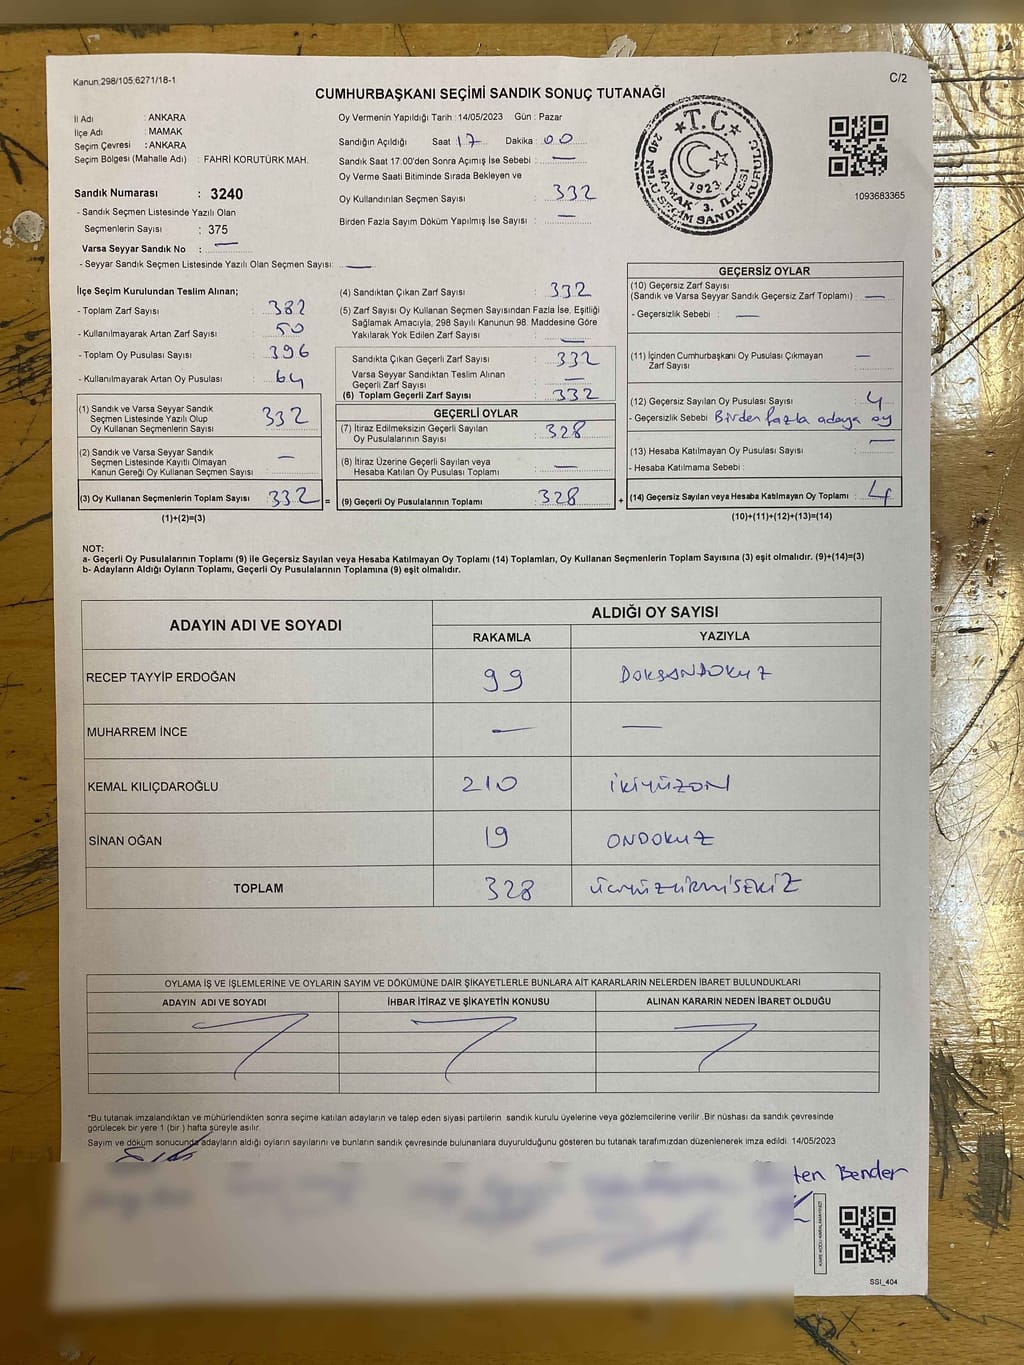 Kanun, 298/105,6271/18-1
C/2
CUMHURBAŞKANI SEÇİMİ SANDIK SONUÇ TUTANAĞI
İl Adı : ANKARA
İlçe Adı : MAMAK
Seçim Çevresi : ANKARA
Seçim Bölgesi (Mahalle Adı) : FAHRİ KORUTÜRK MAH.
Sandık Numarası : 3240
- Sandık Seçmen Listesinde Yazılı Olan
Seçmenlerin Sayısı : 375
Varsa Seyyar Sandık No : —
- Seyyar Sandık Seçmen Listesinde Yazılı Olan Seçmen Sayısı: —
Oy Vermenin Yapıldığı Tarih : 14/05/2023 Gün : Pazar
Sandığın Açıldığı Saat 17 Dakika : 00
Sandık Saat 17:00'den Sonra Açımış İse Sebebi : —
Oy Verme Saati Bitiminde Sırada Bekleyen ve
Oy Kullandırılan Seçmen Sayısı : 332
Birden Fazla Sayım Döküm Yapılmış İse Sayısı : —
T.C.
1923
240 NOLU SEÇİM SANDIK KURULU
MAMAK 3. İLÇESİ
1093683365
İlçe Seçim Kurulundan Teslim Alınan;
- Toplam Zarf Sayısı : 382
- Kullanılmayarak Artan Zarf Sayısı : 50
- Toplam Oy Pusulası Sayısı : 396
- Kullanılmayarak Artan Oy Pusulası : 64
(1) Sandık ve Varsa Seyyar Sandık
Seçmen Listesinde Yazılı Olup
Oy Kullanan Seçmenlerin Sayısı : 332
(2) Sandık ve Varsa Seyyar Sandık
Seçmen Listesinde Kayıtlı Olmayan
Kanun Gereği Oy Kullanan Seçmen Sayısı : —
(3) Oy Kullanan Seçmenlerin Toplam Sayısı : 332 =
(1)+(2)=(3)
(4) Sandıktan Çıkan Zarf Sayısı : 332
(5) Zarf Sayısı Oy Kullanan Seçmen Sayısından Fazla İse, Eşitliği
Sağlamak Amacıyla, 298 Sayılı Kanunun 98. Maddesine Göre
Yakılarak Yok Edilen Zarf Sayısı : —
Sandıkta Çıkan Geçerli Zarf Sayısı : 332
Varsa Seyyar Sandıktan Teslim Alınan
Geçerli Zarf Sayısı : —
(6) Toplam Geçerli Zarf Sayısı : 332
GEÇERLİ OYLAR
(7) İtiraz Edilmeksizin Geçerli Sayılan
Oy Pusulalarının Sayısı : 328
(8) İtiraz Üzerine Geçerli Sayılan veya
Hesaba Katılan Oy Pusulası Toplamı : —
(9) Geçerli Oy Pusulalarının Toplamı : 328 +
GEÇERSİZ OYLAR
(10) Geçersiz Zarf Sayısı
(Sandık ve Varsa Seyyar Sandık Geçersiz Zarf Toplamı) : —
- Geçersizlik Sebebi : —
(11) İçinden Cumhurbaşkanı Oy Pusulası Çıkmayan
Zarf Sayısı : —
(12) Geçersiz Sayılan Oy Pusulası Sayısı : 4
- Geçersizlik Sebebi : Birden fazla adaya oy
(13) Hesaba Katılmayan Oy Pusulası Sayısı : —
- Hesaba Katılmama Sebebi :
(14) Geçersiz Sayılan veya Hesaba Katılmayan Oy Toplamı : 4
(10)+(11)+(12)+(13)=(14)
NOT:
a- Geçerli Oy Pusulalarının Toplamı (9) ile Geçersiz Sayılan veya Hesaba Katılmayan Oy Toplamı (14) Toplamları, Oy Kullanan Seçmenlerin Toplam Sayısına (3) eşit olmalıdır. (9)+(14)=(3)
b- Adayların Aldığı Oyların Toplamı, Geçerli Oy Pusulalarının Toplamına (9) eşit olmalıdır.
ADAYIN ADI VE SOYADI ALDIĞI OY SAYISI
RAKAMLA YAZIYLA
RECEP TAYYİP ERDOĞAN 99 DOKSANDOKUZ
MUHARREM İNCE — —
KEMAL KILIÇDAROĞLU 210 İKİYÜZON
SİNAN OĞAN 19 ONDOKUZ
TOPLAM 328 ÜÇYÜZYİRMİSEKİZ
OYLAMA İŞ VE İŞLEMLERİNE VE OYLARIN SAYIM VE DÖKÜMÜNE DAİR ŞİKAYETLERLE BUNLARA AİT KARARLARIN NELERDEN İBARET BULUNDUKLARI
ADAYIN ADI VE SOYADI İHBAR İTİRAZ VE ŞİKAYETİN KONUSU ALINAN KARARIN NEDEN İBARET OLDUĞU
*Bu tutanak imzalandıktan ve mühürlendikten sonra seçime katılan adayların ve talep eden siyasi partilerin sandık kurulu üyelerine veya gözlemcilerine verilir. Bir nüshası da sandık çevresinde
görülecek bir yere 1 (bir) hafta süreyle asılır.
Sayım ve döküm sonucunda adayların aldığı oyların sayılarını ve bunların sandık çevresinde bulunanlara duyurulduğunu gösteren bu tutanak tarafımızdan düzenlenerek imza edildi. 14/05/2023
ten Bender
SSI_404